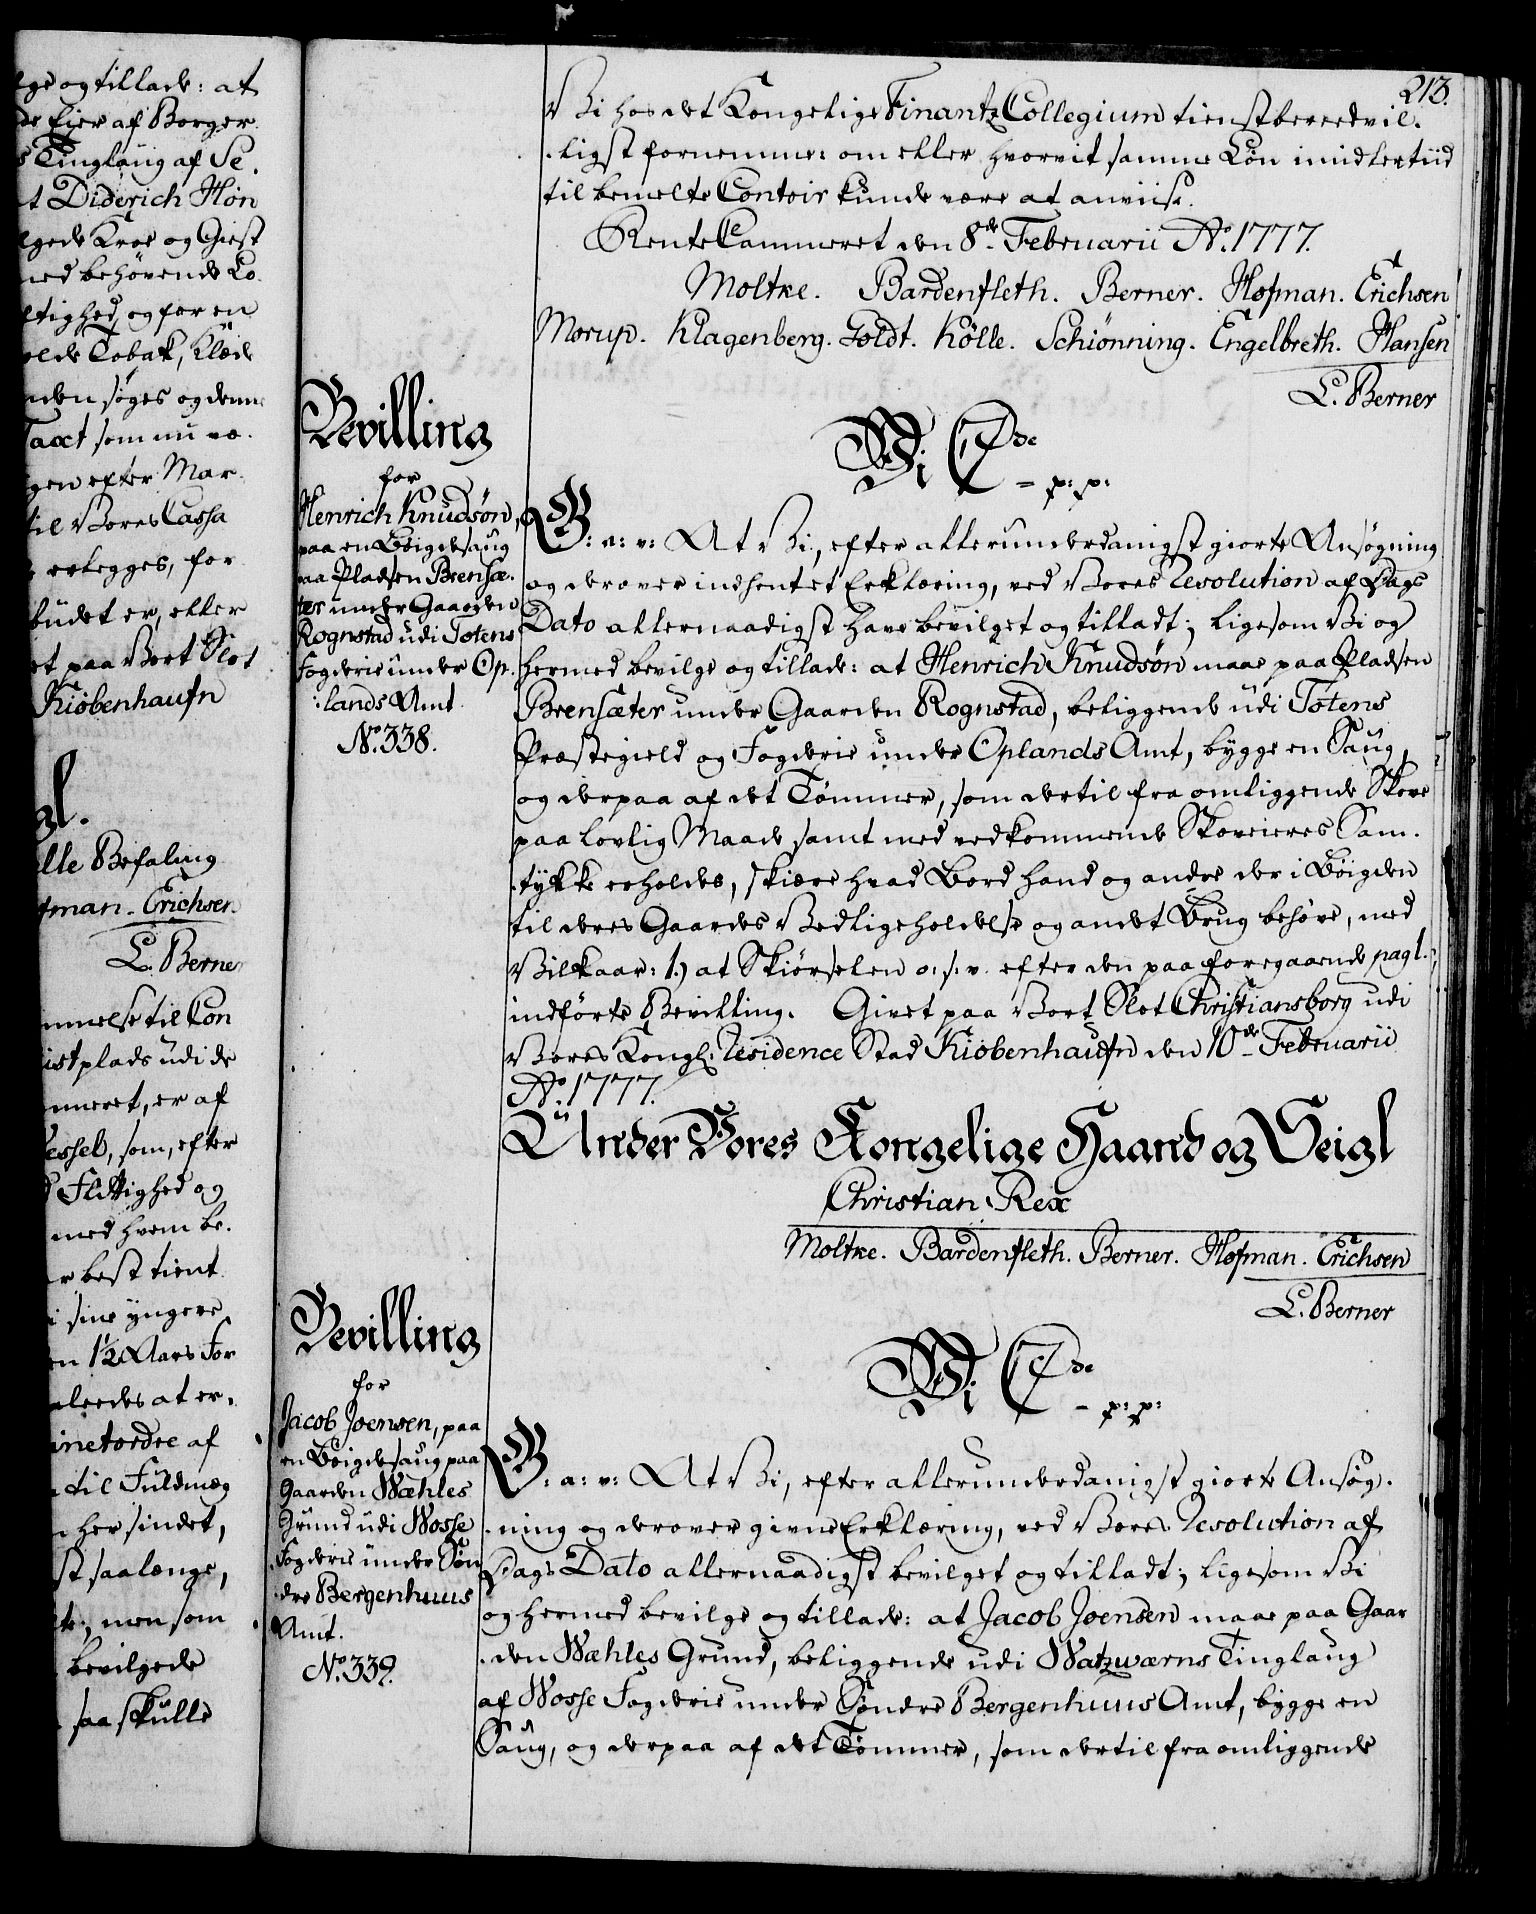 lge og tillade: at
de Eier af Borger
s Tinglaug af Se,
t Diderich Hon
lgede Kroe og Giest
med behøvende Lo.
ltighed, og for en
olde Tobak, Klæde
nden søges og denne
Taxt som nu væ.
gen efter Mar
til Vores Cassa
erlegges, for
budet er, eller
et paa Vort Slot
Kiöbenhaufn
gl.
lle Befaling
fman. Erichsen
L. Berner
mmelse til Con
istplads udi de
mmeret, er af
Wessel, som, efter
d Flittighed og
med hvem be.
er best tient
i sine yngere
en 1½ Aars for
aleedes at er.
inetordre af
til Fuldmæg
her sindet,
st saalænge,
te, men som
bevilgede
saa skulle
213.
Vi hos det Kongelige Finantz Collegium tienstbereedvil.
ligst fornemme: om eller hvorvit samme Løn imidlertiid
til bemelte Contoir kunde være at anviise.
RenteCammeret den 8de Februarii Ao. 1777.
Moltke. Bardenfleth. Berner. Hofman. Erichsen
Morup. Klagenberg. Goldt. Kölle. Schiönning. Engelbreth. Hansen
L. Berner
Bevilling
for
Henrich Knudsøn,
paa en Bøigdesaug
paa Pladsen Brensæ.
ter under Gaarden
Rognstad udi Totens
Fogderie under Op.
:lands Amt
No. 338.
Vi C 7de
= p: p:
G: a: v: At Vi, efter allerunderdanigst giorte Ansøgning
og derover indhentet Erklæring, ved Vores Resolution af Dags
Dato allernaadigst have bevilget og tilladt; ligesom Vi og
hermed bevilge og tillade: at Henrich Knudsøn maae paa Pladsen
Brensæter under Gaarden Rognstad, beliggende udi Totens
Præstegield og Fogderie under Oplands Amt, bygge en Saug,
og derpaa af det Tømmer, som dertil fra omliggende Skove
paa lovlig Maade samt med vedkommende Skoveieres Sam.
tykke erholdes, skiære hvad Bord hand og andre der i Bøigden
til deres Gaardes Vedligeholdelse og andet Brug behøve, med
Vilkaar: 1.) at Skiørselen o: s: v. efter den paa foregaaende pagl.
indførte Bevilling. Givet paa Vort Slot Christiansborg udi
Vores Kongl. Residence Stad Kiöbenhaufn den 10de Februarii
Ao. 1777.
Under Vores Kongelige Haand og Seigl
Christian Rex
Moltke. Bardenfleth. Berner. Hofman. Erichsen
L. Berner
Bevilling
for
Jacob Joensen, paa
en Bøigdesaug paa
Gaarden Wæhles
Grund udi Wosse
Fogderie under Søn
dre Bergenhuus
Amt.
No. 339.
Vi C 7de
= p: p:
G: a: v: At Vi, efter allerunderdanigst giorte Ansøg.
ning og derover givne Erklæring, ved Vores Resolution af
Dags Dato allernaadigst bevilget og tilladt; ligesom Vi
og hermed bevilge og tillade: at Jacob Joensen maae paa Gaar
den Wæhles Grund, beliggende udi Watzværns Tinglaug
af Wosse Fogderie under Søndre Bergenhuus Amt, bygge en
Saug, og derpaa af det Tømmer, som dertil fra omliggende